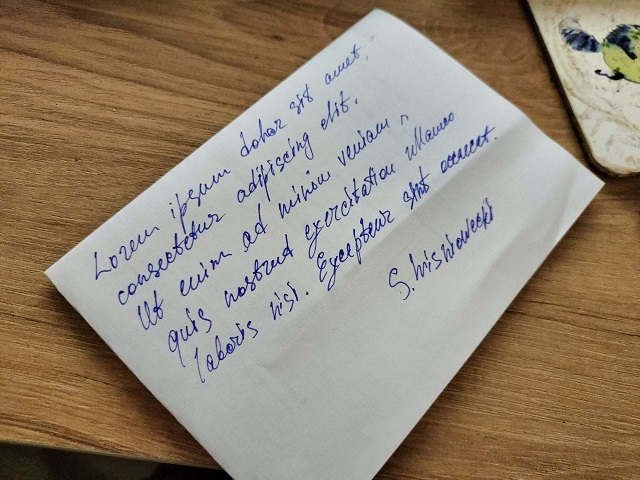 Lorem ipsum dolor sit amet,
consectetur adipiscing elit.
Ut enim ad minim veniam,
quis nostrud exercitation ullamco
laboris nisi. Excepteur sint occaecat.
S.